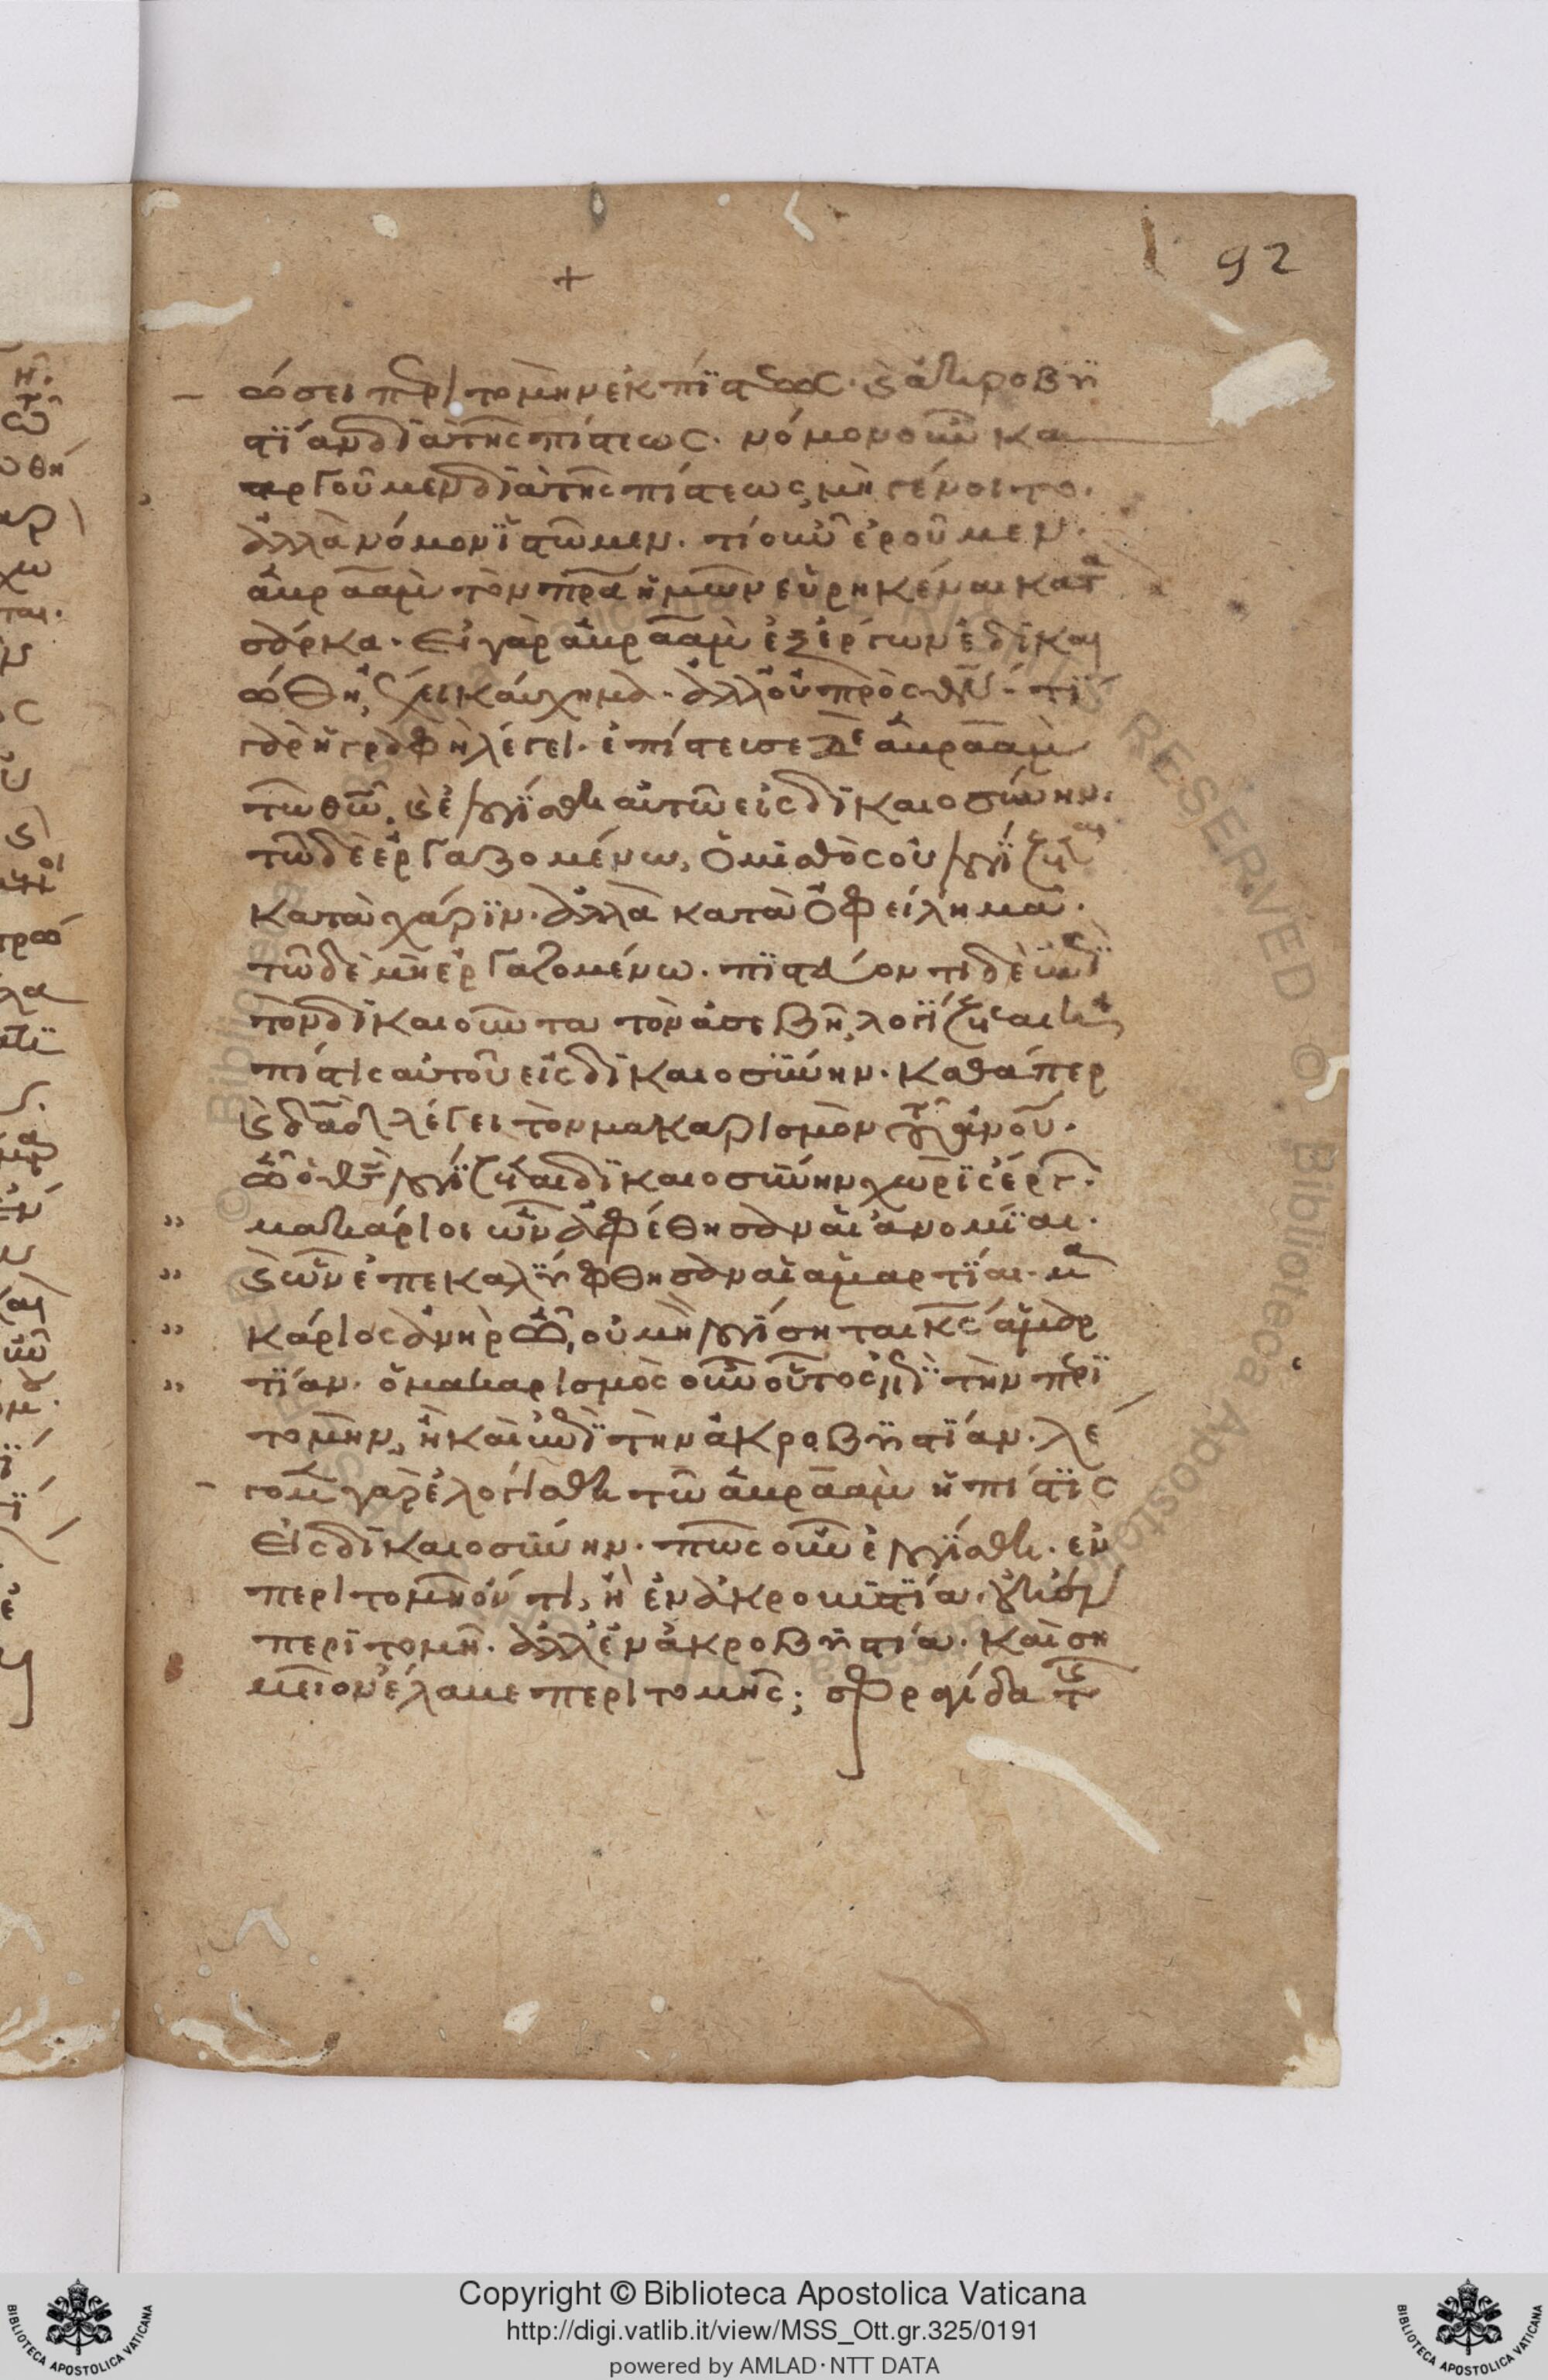 92
+
ώσει περιτομὴν ἐκ πίστεως. καὶ ἀκροβυ
στίαν διὰ τῆς πίστεως. νόμον οὖν κα
ταργοῦμεν διὰ τῆς πίστεως, μὴ γένοιτο.
ἀλλὰ νόμον ἱστῶμεν. τί οὖν ἐροῦμεν.
ἀβραὰμ τὸν πρα ἡμῶν εὑρηκέναι κατὰ
σάρκα. εἰ γὰρ ἀβραὰμ ἐξ ἔργων ἐδικαι
ώθη, ἔχει καύχημα. ἀλλ' οὐ πρὸς θν. τί
γὰρ ἡ γραφὴ λέγει. ἐπίστευσε δὲ ἀβραὰμ
τῶ θῶ, καὶ ἐλογίσθη αὐτῶ εἰς δικαιοσύνην.
τῶ δὲ ἐργαζομένω, ὁ μισθὸς οὐ λογίζεται
κατὰ χάριν. ἀλλὰ κατὰ ὀφείλημα.
τῶ δὲ μὴ ἐργαζομένω. πιστεύοντι δὲ ἐπὶ
τὸν δικαιοῦντα τὸν ἀσεβῆ, λογίζεται ἡ
πίστις αὐτοῦ εἰς δικαιοσύνην. καθάπερ
καὶ δαδ λέγει τὸν μακαρισμὸν τοῦ ἀνου.
ὧ ὁ θς λογίζεται δικαιοσύνην χωρὶς ἔργων.
μακάριοι ὧν ἀφέθησαν αἱ ἀνομίαι.
καὶ ὧν ἐπεκαλύφθησαν αἱ ἁμαρτίαι. μα
κάριος ἀνὴρ ὧ, οὐ μὴ λογίσηται κς ἁμαρ
τίαν. ὁ μακαρισμὸς οὖν οὗτος ἐπὶ τὴν περι
τομὴν, ἢ καὶ ἐπὶ τὴν ἀκροβυστίαν. λέ
γομεν γὰρ ἐλογίσθη τῶ ἀβραὰμ ἡ πίστις
εἰς δικαιοσύνην. πῶς οὖν ἐλογίσθη. ἐν
περιτομῆ ὄντι, ἢ ἐν ἀκροβυστία. οὐκ ἐν
περιτομῆ. ἀλλ' ἐν ἀκροβυστία. καὶ ση
μεῖον ἔλαβε περιτομῆς; σφραγίδα τῆς
Copyright © Biblioteca Apostolica Vaticana
http://digi.vatlib.it/view/MSS_Ott.gr.325/0191
powered by AMLAD·NTT DATA